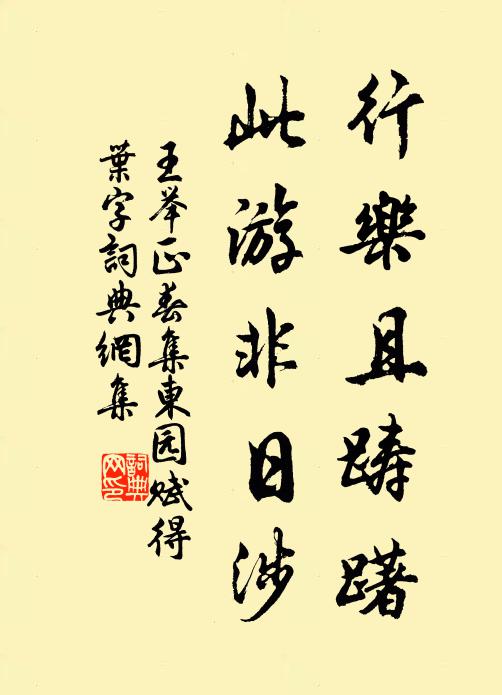 行樂且躊躇
此游非日涉
王举正春集東园赋得
葉字詞典網集
詞典
网印